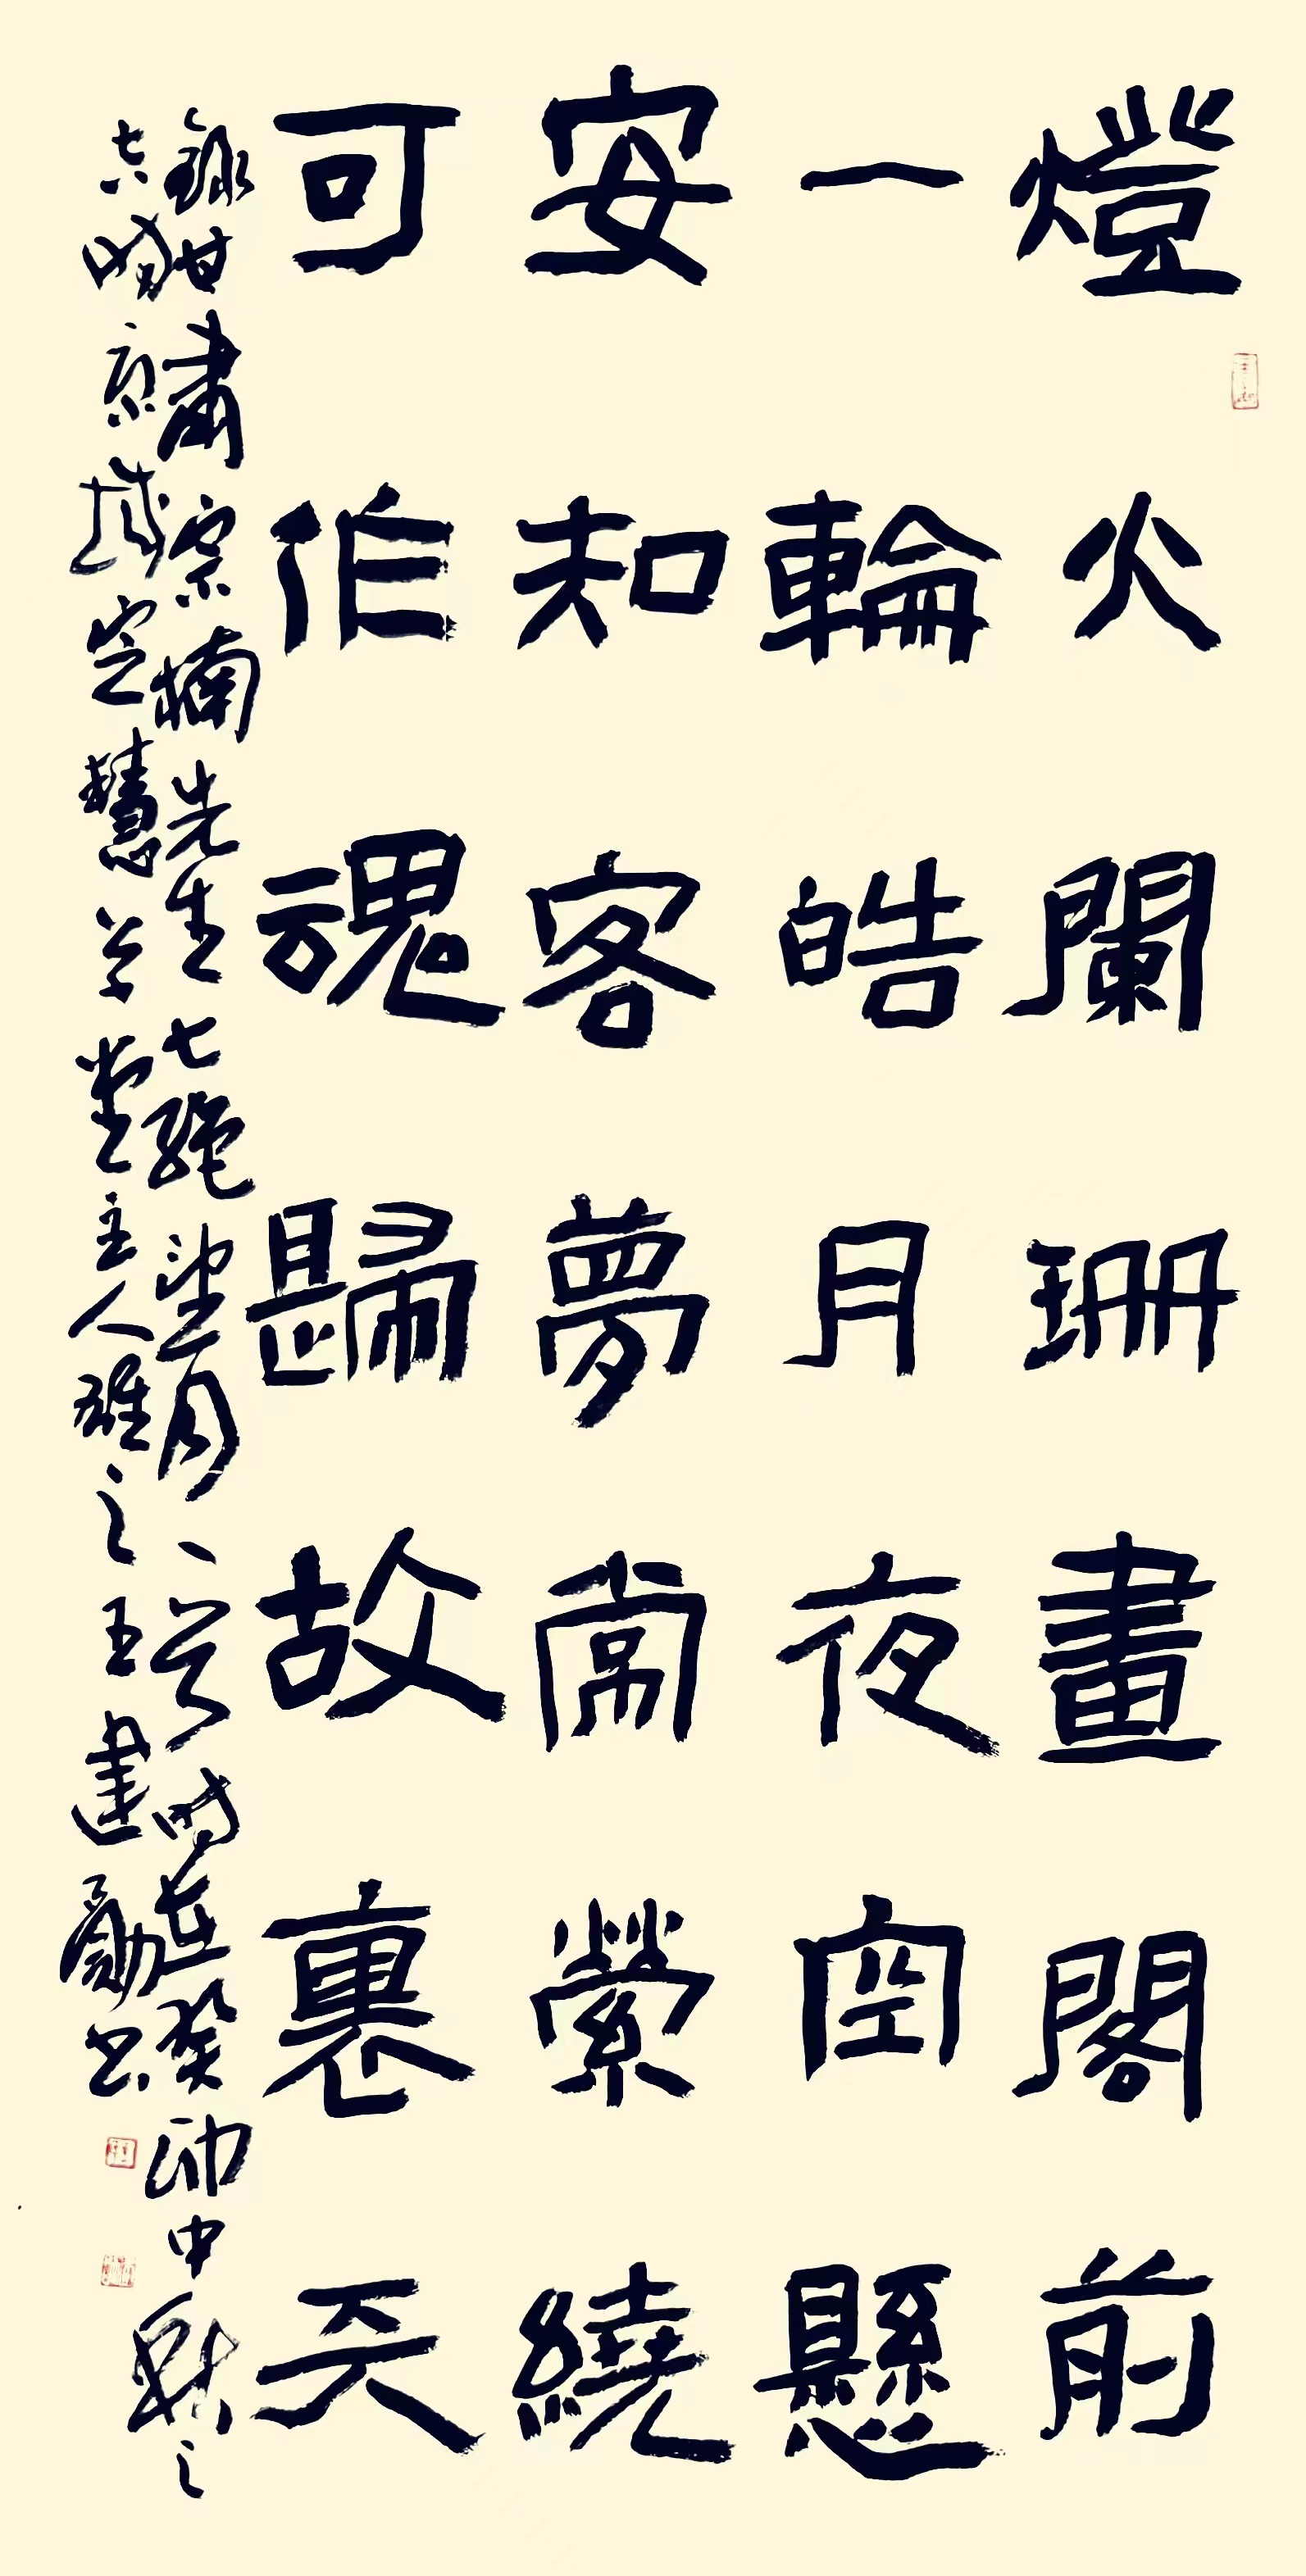 燈火闌珊畫閣前
一輪皓月夜空懸
安知客夢常縈繞
可作魂歸故裏天
錄甘肅宗楠先生七絕望月一首時在癸卯中秋之
吉時京城定慧草堂主人雄之王建勳書